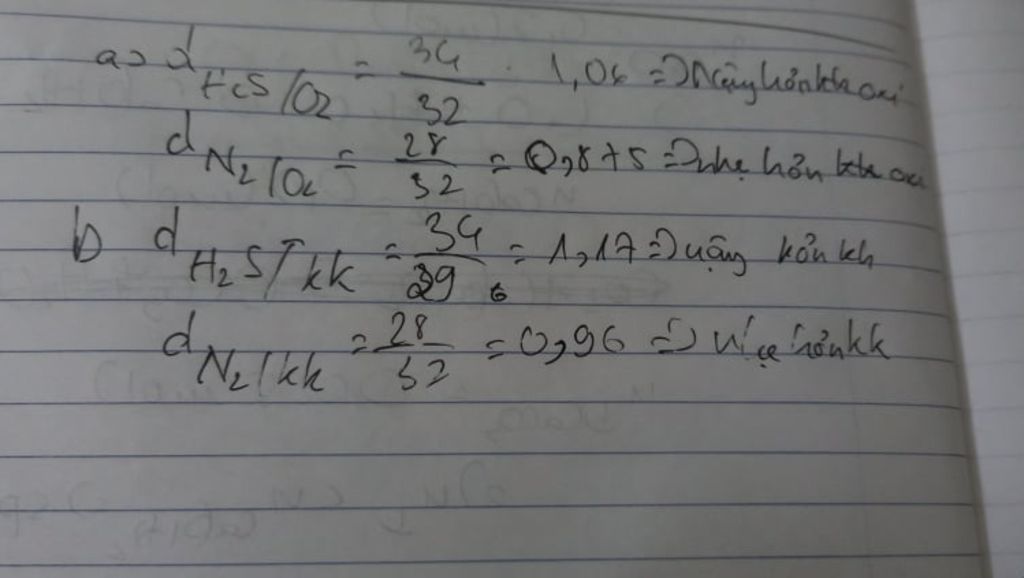 a) d H2S/O2 = 34/32 = 1,06 => Nặng hơn khí oxi
d N2/O2 = 28/32 = 0,875 => nhẹ hơn khí oxi
b d H2S/kk = 34/29 = 1,17 => nặng hơn kk
d N2/kk = 28/32 = 0,96 => nhẹ hơn kk